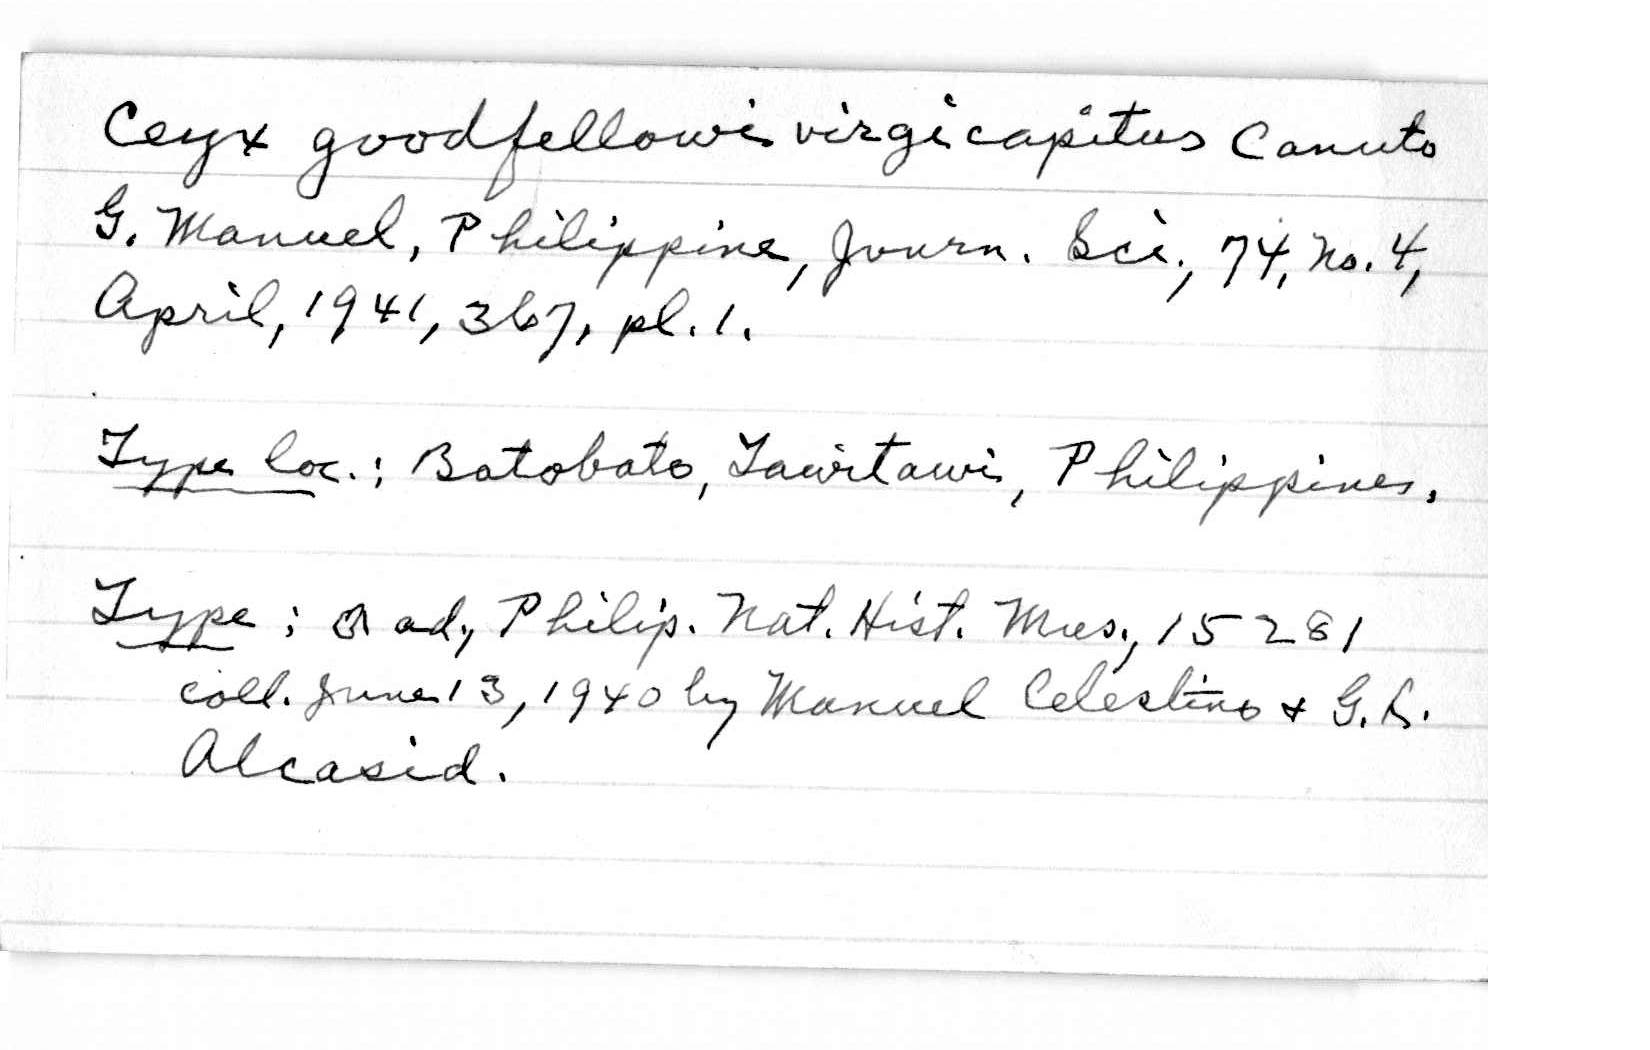 Ceyx goodfellowi virgicapitus Canuto
G. Manuel, Philippine, Journ. Sci., 74, No. 4,
April, 1941, 367, pl. 1.
Type loc.: Batobato, Tawitawi, Philippines.
Type: ♂ ad., Philip. Nat. Hist. Mus., 15281
coll. June 13, 1940 by Manuel Celestino & G. L.
Alcasid.